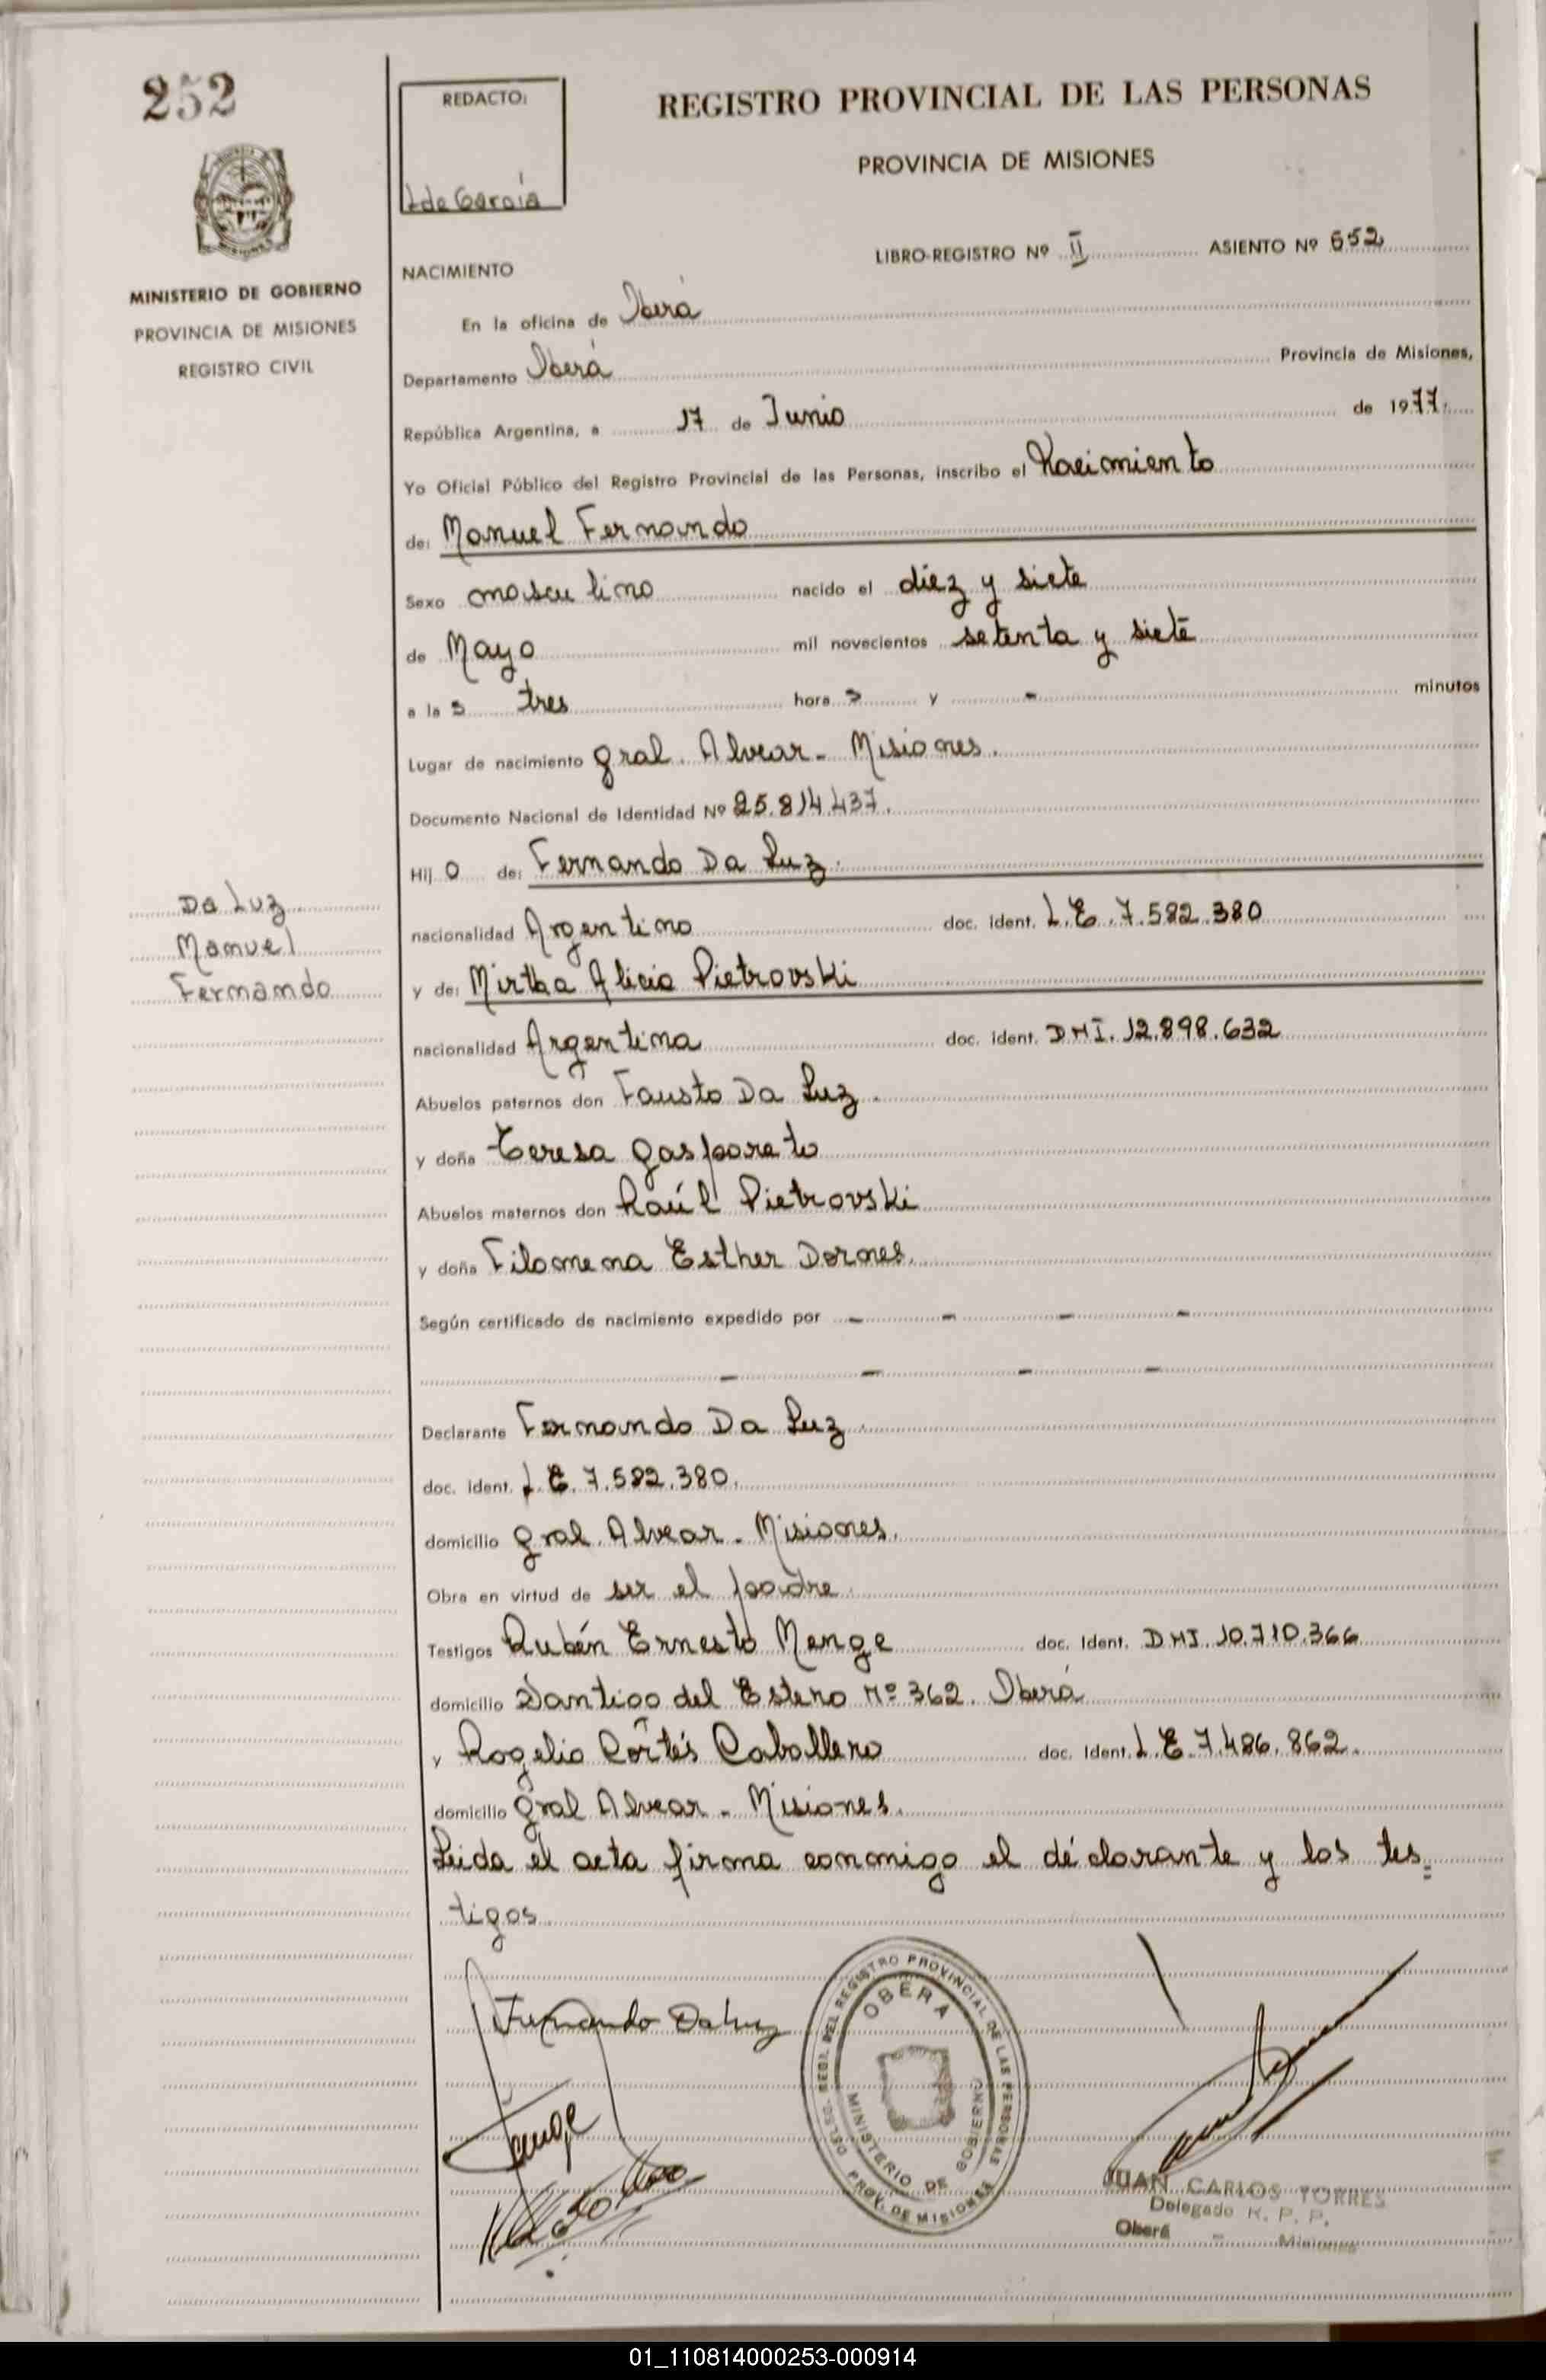 252
REDACTO:
L de García
REGISTRO PROVINCIAL DE LAS PERSONAS
PROVINCIA DE MISIONES
MINISTERIO DE GOBIERNO
PROVINCIA DE MISIONES
REGISTRO CIVIL
LIBRO-REGISTRO Nº II ASIENTO Nº 652
NACIMIENTO
En la oficina de Oberá
Departamento Oberá Provincia de Misiones,
República Argentina, a 17 de Junio de 1977.
Yo Oficial Público del Registro Provincial de las Personas, inscribo el Nacimiento
de: Manuel Fernando
Sexo masculino nacido el diez y siete
de Mayo mil novecientos setenta y siete
a la s tres hora s y - minutos
Lugar de nacimiento Gral. Alvear - Misiones.
Documento Nacional de Identidad Nº 25.814.437.
Hij o de: Fernando Da Luz.
nacionalidad Argentino doc. ident. L.E. 7.582.380
y de: Mirtha Alicia Pietrovski
nacionalidad Argentina doc. ident. DNI. 12.898.632
Abuelos paternos don Fausto Da Luz.
y doña Teresa Gaspareto
Abuelos maternos don Raúl Pietrovski
y doña Filomena Esther Dornes.
Según certificado de nacimiento expedido por - - - -
- - - -
Declarante Fernando Da Luz.
doc. ident. L.E. 7.582.380.
domicilio Gral. Alvear - Misiones.
Obra en virtud de ser el padre.
Testigos Rubén Ernesto Menge doc. Ident. DNI 10.710.366
domicilio Santiago del Estero Nº 362. Oberá
y Rogelio Cortés Caballero doc. Ident. L.E. 7.486.862.
domicilio Gral Alvear - Misiones.
Leída el acta firma conmigo el declarante y los tes=
tigos.
Da Luz
Manuel
Fernando
Fernando Da Luz
Menge
DELEG. REGI. DEL REGISTRO PROVINCIAL DE LAS PERSONAS
OBERA
MINISTERIO DE GOBIERNO
PROV. DE MISIONES
JUAN CARLOS TORRES
Delegado R. P. P.
Oberá - Misiones
01_110814000253-000914